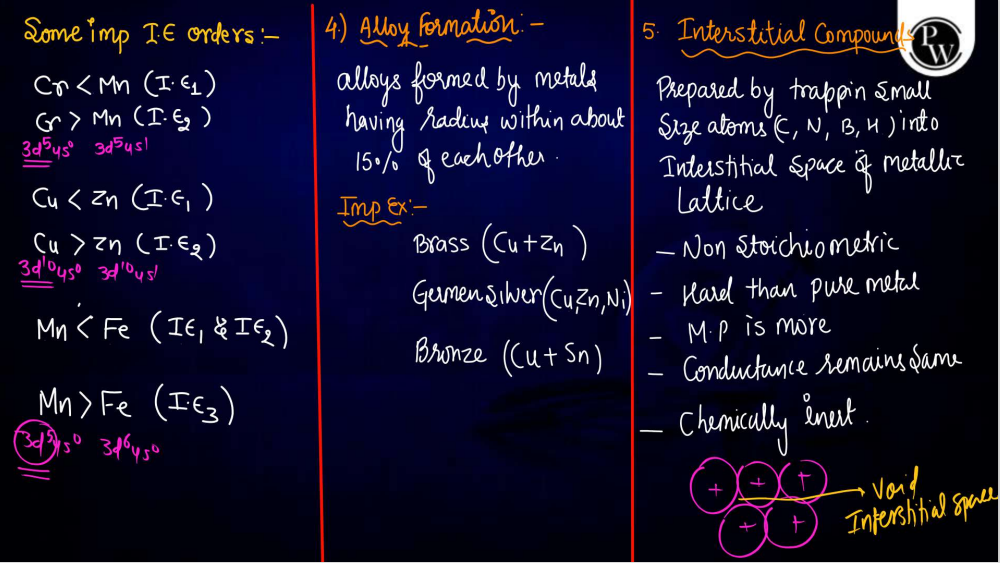 Some imp I.E orders:-
Cr < Mn (I.E₁)
Cr > Mn (I.E₂)
3d⁵4s⁰ 3d⁵4s¹
Cu < Zn (I.E₁)
Cu > Zn (I.E₂)
3d¹⁰4s⁰ 3d¹⁰4s¹
Mn < Fe (IE₁ & IE₂)
Mn > Fe (I.E₃)
3d⁵4s⁰ 3d⁶4s⁰
4.) Alloy Formation:-
alloys formed by metals
having radius within about
15% of each other.
Imp Ex:-
Brass (Cu+Zn)
Germen Silver (Cu,Zn,Ni)
Bronze (Cu+Sn)
5. Interstitial Compounds
PW
Prepared by trappin small
Size atoms (C, N, B, H) into
Interstitial Space of metallic
Lattice
- Non Stoichiometric
- Hard than pure metal
- M.P is more
- Conductance remains Same
- Chemically inert.
+ + +
+ +
Void
Interstitial space